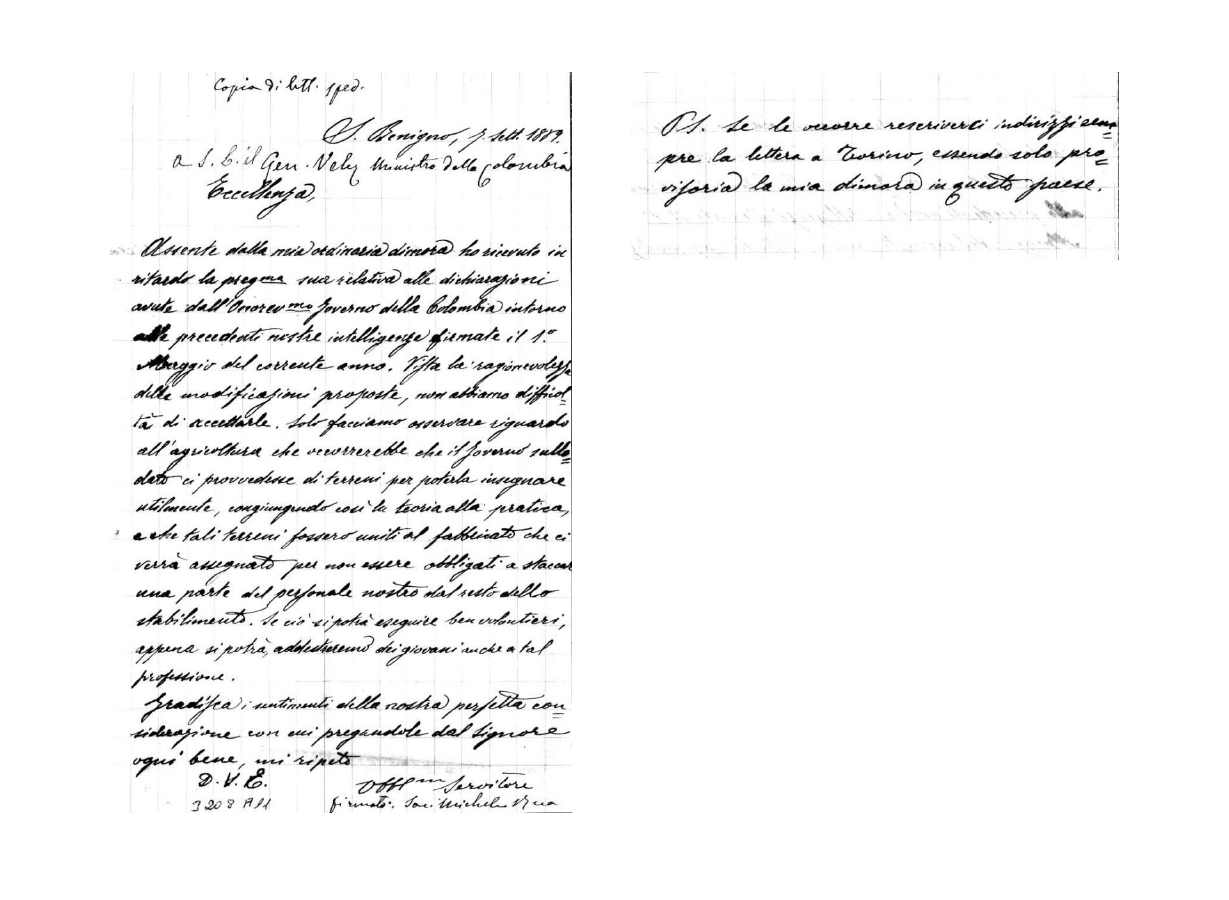 Copia di lett. sped.
S. Benigno, 7. Sett. 1889.
a S. E. il Gen. Velez Ministro della Colombia
Eccellenza,
Assente dalla mia ordinaria dimora ho ricevuto in
ritardo la preg.ma sua relativa alle dichiarazioni
avute dall'Onorev.mo Governo della Colombia intorno
alle precedenti nostre intelligenze firmate il 1.o
Maggio del corrente anno. Vista la ragionevolezza
delle modificazioni proposte, non abbiamo difficol=
tà di accettarle. Solo facciamo osservare riguardo
all'agricoltura che occorrerebbe che il Governo sullo=
dato ci provvedesse di terreni per poterla insegnare
utilmente, congiungendo così la teoria alla pratica,
e che tali terreni fossero uniti al fabbricato che ci
verrà assegnato per non essere obbligati a staccar
una parte del personale nostro dal resto dello
stabilimento. Se ciò si potrà eseguire ben volontieri,
appena si potrà, addestreremo dei giovani anche a tal
professione.
Gradisca i sentimenti della nostra perfetta con=
siderazione con cui pregandole dal Signore
ogni bene, mi ripeto
D. V. E.
Obbl.m Servitore
3208 A11
firmato. Sac. Michele Rua
P.S. Se le occorre rescriverci indirizzi sem=
pre la lettera a Torino, essendo solo pro=
visoria la mia dimora in questo paese.